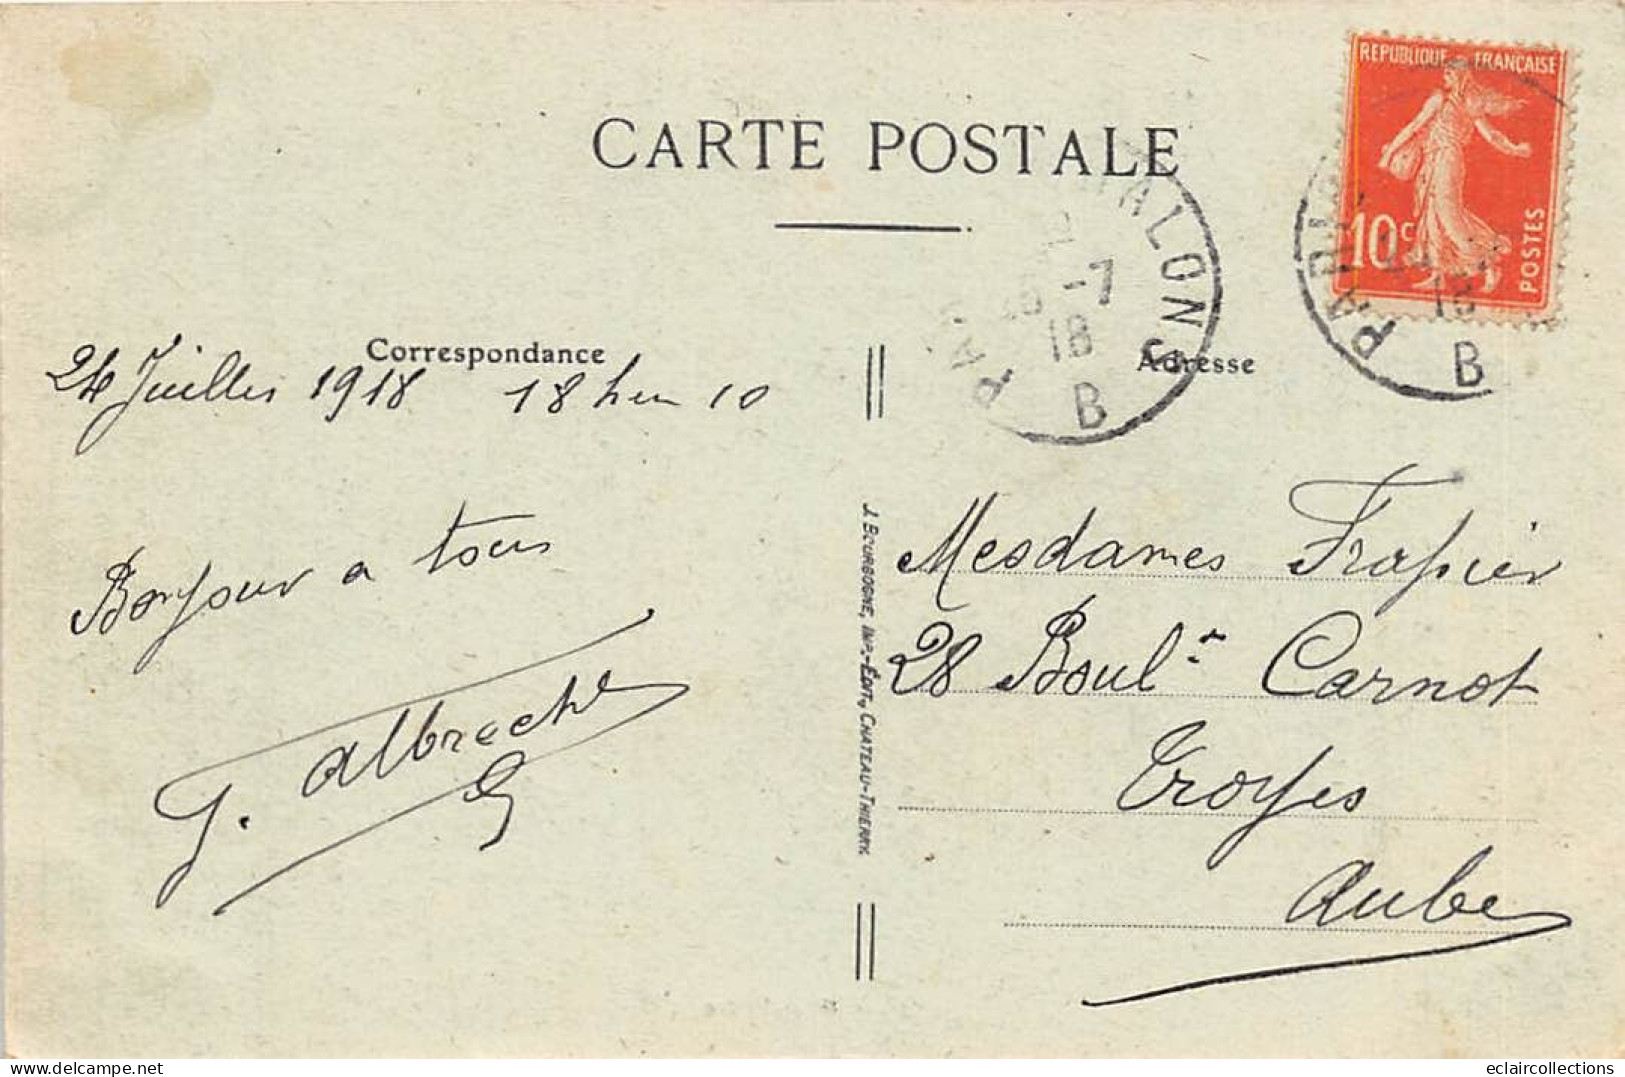 CARTE POSTALE
REPUBLIQUE FRANÇAISE
10c
POSTES
PARIS
B
-7
18
B
Correspondance
Adresse
24 Juillet 1918 18 heu 10
Bonjour a tous
J. Albrecht
J. BOURGOGNE, IMP.-ÉDIT., CHATEAU-THIERRY
Mesdames Frapier
28 Boul.r Carnot
Troyes
Aube
delcampe.net
eclaircollections